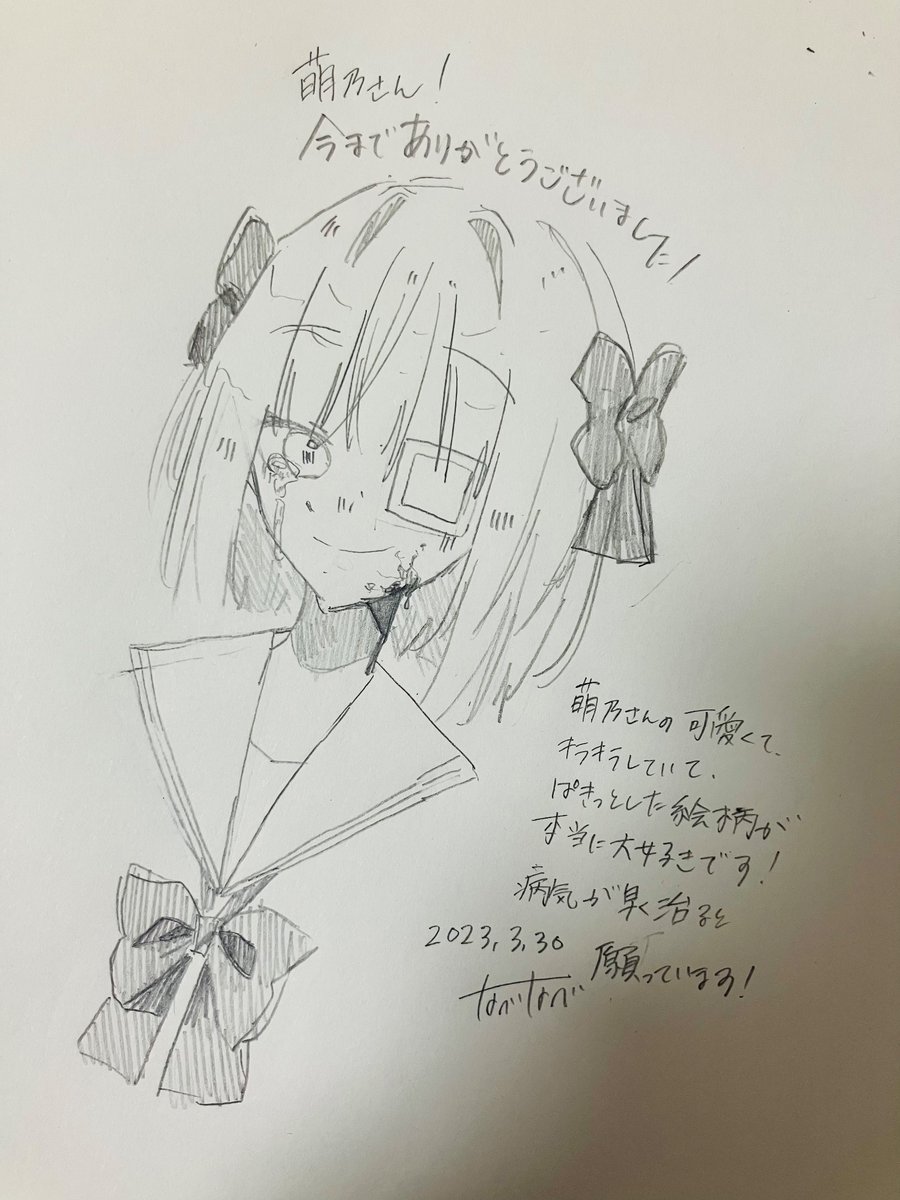 萌乃さん!
今までありがとうございました!
萌乃さんの可愛くて、
キラキラしていて、
ぱきっとした絵柄が
本当に大好きです!
病気が早く治ると
願っています!
2023.3.30
なべなべ